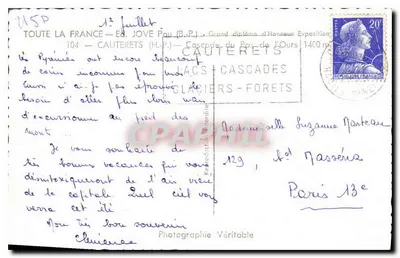 115P
1er juillet
TOUTE LA FRANCE — Ed. JOVE Pau (B.-P.) - Grand diplôme d'Honneur Exposition
104 — CAUTERETS (H.-P.) — Cascade du Pas de l'Ours 1400 m
CAUTERETS
LACS - CASCADES
GLACIERS - FORETS
20F
Les Pyrénées ont encore beaucoup
de coins inconnus pour moi
aussi n'ai-je pas éprouvé le
besoin d'aller plus loin
d'excursionner au pied des
monts.
Je vous souhaite de
très bonnes vacances qui vous
désintoxiqueront de l'air vicié
de la capitale. Quel ciel vous
verra cet été
Mon très bon souvenir
Clémence
Mademoiselle Suzanne Marteau
129, Bd Masséna
Paris 13e
Photographie Véritable
www.cparama.com